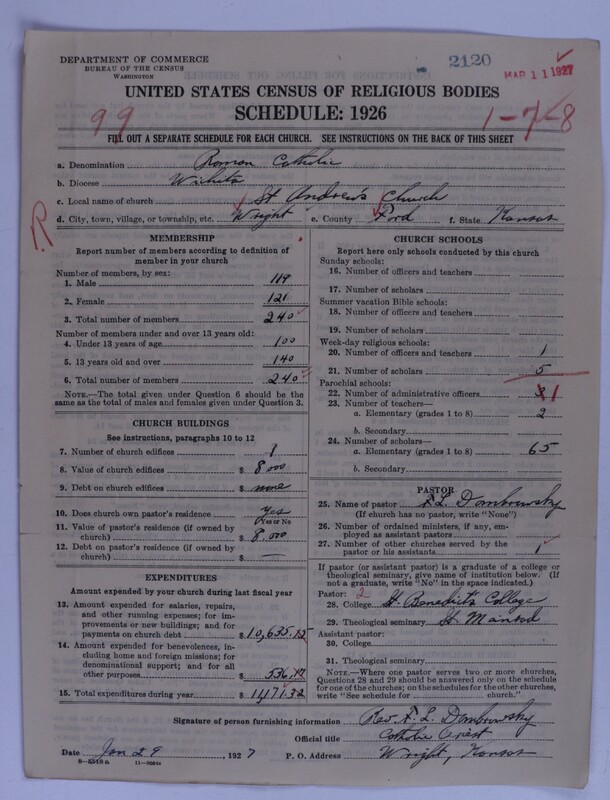 DEPARTMENT OF COMMERCE
BUREAU OF THE CENSUS
WASHINGTON
2120
MAR 11 1927
UNITED STATES CENSUS OF RELIGIOUS BODIES
SCHEDULE: 1926
99
1-7-8
FILL OUT A SEPARATE SCHEDULE FOR EACH CHURCH. SEE INSTRUCTIONS ON THE BACK OF THIS SHEET
a. Denomination Roman Catholic
b. Diocese Wichita
c. Local name of church St Andrew's Church
d. City, town, village, or township, etc. Wright e. County Ford f. State Kansas
R
MEMBERSHIP
Report number of members according to definition of
member in your church
Number of members, by sex:
1. Male 119
2. Female 121
3. Total number of members 240
Number of members under and over 13 years old:
4. Under 13 years of age 100
5. 13 years old and over 140
6. Total number of members 240
NOTE.—The total given under Question 6 should be the
same as the total of males and females given under Question 3.
CHURCH BUILDINGS
See instructions, paragraphs 10 to 12
7. Number of church edifices 1
8. Value of church edifices $ 8,000
9. Debt on church edifices $ none
10. Does church own pastor's residence? Yes
Yes or No
11. Value of pastor's residence (if owned by
church) $ 8,000
12. Debt on pastor's residence (if owned by
church) $ —
EXPENDITURES
Amount expended by your church during last fiscal year
13. Amount expended for salaries, repairs,
and other running expenses; for im-
provements or new buildings; and for
payments on church debt $ 10,635.15
14. Amount expended for benevolences,
including home and foreign missions; for
denominational support; and for all
other purposes $ 536.17
15. Total expenditures during year $ 11,171.32
CHURCH SCHOOLS
Report here only schools conducted by this church
Sunday schools:
16. Number of officers and teachers
17. Number of scholars
Summer vacation Bible schools:
18. Number of officers and teachers
19. Number of scholars
Week-day religious schools:
20. Number of officers and teachers 1
21. Number of scholars 5
Parochial schools:
22. Number of administrative officers 1
23. Number of teachers—
a. Elementary (grades 1 to 8) 2
b. Secondary
24. Number of scholars—
a. Elementary (grades 1 to 8) 65
b. Secondary
PASTOR
25. Name of pastor F. L. Dombrowsky
(If church has no pastor, write "None")
26. Number of ordained ministers, if any, em-
ployed as assistant pastors
27. Number of other churches served by the
pastor or his assistants 1
If pastor (or assistant pastor) is a graduate of a college or
theological seminary, give name of institution below. (If
not a graduate, write "No" in the space indicated.)
Pastor: 2
28. College St. Benedict's College
29. Theological seminary St
Assistant pastor:
30. College
31. Theological seminary
NOTE.—Where one pastor serves two or more churches,
Questions 28 and 29 should be answered only on the schedule
for one of the churches; on the schedules for the other churches,
write "See schedule for church."
Signature of person furnishing information Rev. F. L. Dombrowsky
Official title Catholic Priest
Date Jan 29, 1927 P. O. Address Wright, Kansas